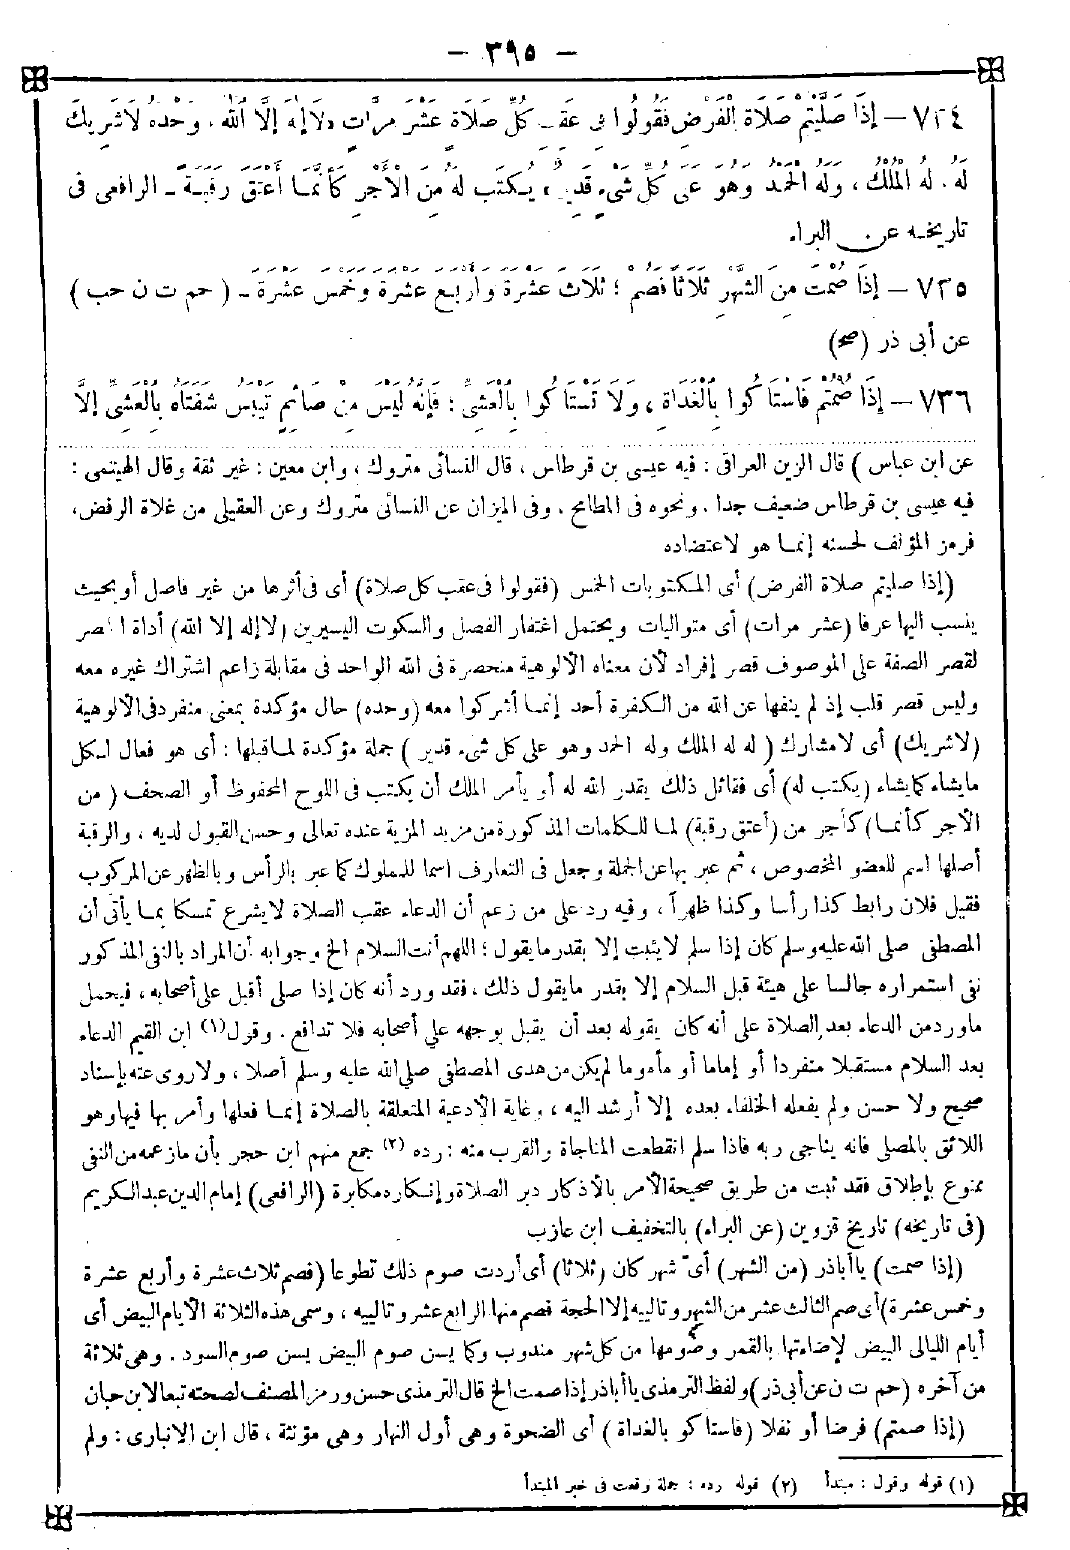 — ٣٩٥ —
٧٣٤ — إِذَا صَلَّيْتُمْ صَلَاةَ الْفَرْضِ فَقُولُوا فِى عَقِبِ كُلِّ صَلَاةٍ عَشْرَ مَرَّاتٍ «لَا إِلٰهَ إِلَّا اللّٰهُ، وَحْدَهُ لَا شَرِيكَ
لَهُ، لَهُ الْمُلْكُ، وَلَهُ الْحَمْدُ وَهُوَ عَلَى كُلِّ شَىْءٍ قَدِيرٌ» يُكْتَبُ لَهُ مِنَ الْأَجْرِ كَأَنَّمَا أَعْتَقَ رَقَبَةً ـ الرافعى فى
تاريخه عن البراء
٧٣٥ — إِذَا صُمْتَ مِنَ الشَّهْرِ ثَلَاثًا فَصُمْ: ثَلَاثَ عَشْرَةَ وَأَرْبَعَ عَشْرَةَ وَخَمْسَ عَشْرَةَ ـ (حم ت ن حب)
عن أبى ذر (صح)
٧٣٦ — إِذَا صُمْتُمْ فَاسْتَاكُوا بِالْغَدَاةِ، وَلَا تَسْتَاكُوا بِالْعَشِىِّ: فَإِنَّهُ لَيْسَ مِنْ صَائِمٍ تَيْبَسُ شَفَتَاهُ بِالْعَشِىِّ إِلَّا
عن ابن عباس) قال الزين العراقى: فيه عيسى بن قرطاس، قال النسائى متروك، وابن معين: غير ثقة وقال الهيتمى:
فيه عيسى بن قرطاس ضعيف جدا. ونحوه فى المطامح. وفى الميزان عن النسائى متروك وعن العقيلى من غلاة الرفض،
فرمز المؤلف لحسنه إنما هو لاعتضاده
(إذا صليتم صلاة الفرض) أى المكتوبات الخمس (فقولوا فى عقب كل صلاة) أى فى أثرها من غير فاصل أو بحيث
ينسب اليها عرفا (عشر مرات) أى متواليات ويحتمل اغتفار الفصل والسكوت اليسيرين (لا إله إلا الله) أداة الحصر
لقصر الصفة على الموصوف قصر إفراد لأن معناه الألوهية منحصرة فى الله الواحد فى مقابلة زاعم اشتراك غيره معه
وليس قصر قلب إذ لم ينفها عن الله من الكفرة أحد إنما أشركوا معه (وحده) حال مؤكدة بمعنى منفرد فى الألوهية
(لا شريك) أى لا مشارك (له له الملك وله الحمد وهو على كل شىء قدير) جملة مؤكدة لما قبلها: أى هو فعال لكل
ما يشاء كما يشاء (يكتب له) أى فقائل ذلك يقدر الله له أو يأمر الملك أن يكتب فى اللوح المحفوظ أو الصحف (من
الأجر كأنما) كأجر من (أعتق رقبة) لما للكلمات المذكورة من مزيد المزية عنده تعالى وحسن القبول لديه، والرقبة
أصلها اسم للعضو المخصوص، ثم عبر بها عن الجملة وجعل فى التعارف اسما للمملوك كما عبر بالرأس وبالظهر عن المركوب
فقيل فلان رابط كذا رأسا وكذا ظهراً، وفيه رد على من زعم أن الدعاء عقب الصلاة لا يشرع تمسكا بما يأتى أن
المصطفى صلى الله عليه وسلم كان إذا سلم لا يثبت إلا بقدر ما يقول: اللهم أنت السلام الخ وجوابه أن المراد بالنفى المذكور
نفى استمراره جالسا على هيئة قبل السلام إلا بقدر ما يقول ذلك، فقد ورد أنه كان إذا صلى أقبل على أصحابه، فيحمل
ما ورد من الدعاء بعد الصلاة على أنه كان يقوله بعد أن يقبل بوجهه على أصحابه فلا تدافع. وقول(١) ابن القيم الدعاء
بعد السلام مستقبلا منفردا أو إماما أو مأموما لم يكن من هدى المصطفى صلى الله عليه وسلم أصلا، ولا روى عنه بإسناد
صحيح ولا حسن ولم يفعله الخلفاء بعده إلا أرشد اليه، وغاية الأدعية المتعلقة بالصلاة إنما فعلها وأمر بها فيها وهو
اللائق بالمصلى فانه يناجى ربه فاذا سلم انقطعت المناجاة والقرب منه: رده (٢) جمع منهم ابن حجر بأن ما زعمه من النفى
ممنوع بإطلاق فقد ثبت من طريق صحيحة الأمر بالأذكار دبر الصلاة وإنكاره مكابرة (الرافعى) إمام الدين عبد الكريم
(فى تاريخه) تاريخ قزوين (عن البراء) بالتخفيف ابن عازب
(إذا صمت) يا أبا ذر (من الشهر) أىّ شهر كان (ثلاثا) أى أردت صوم ذلك تطوعا (فصم ثلاث عشرة وأربع عشرة
وخمس عشرة) أى صم الثالث عشر من الشهر وتالييه إلا الحجة فصم منها الرابع عشر وتالييه، وسمى هذه الثلاثة الأيام البيض أى
أيام الليالى البيض لإضاءتها بالقمر وصومها من كل شهر مندوب وكما يسن صوم البيض يسن صوم السود. وهى ثلاثة
من آخره (حم ت ن عن أبى ذر) ولفظ الترمذى يا أبا ذر إذا صمت الخ قال الترمذى حسن ورمز المصنف لصحته تبعا لابن حبان
(إذا صمتم) فرضا أو نفلا (فاستاكو بالغداة) أى الضحوة وهى أول النهار وهى مؤنثة، قال ابن الانبارى: ولم
(١) قوله وقول: مبتدأ (٢) قوله رده: جملة وقعت فى خبر المبتدأ